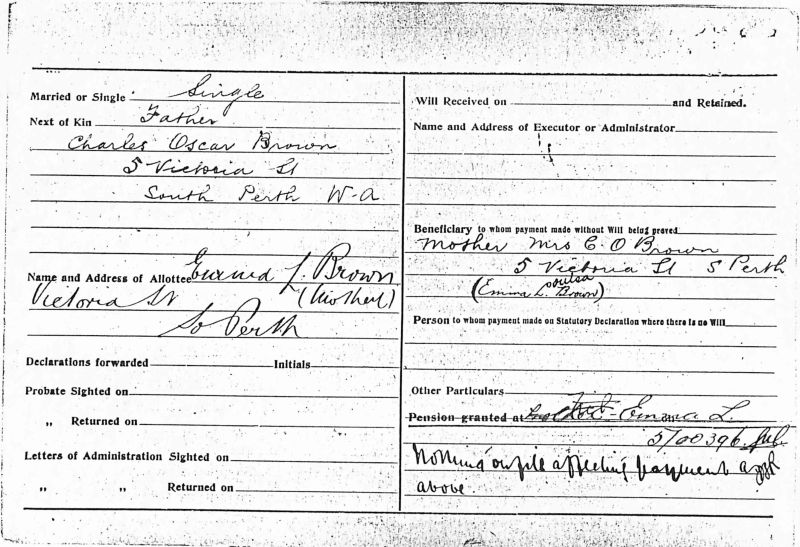 Married or Single Single
Next of Kin Father
Charles Oscar Brown
5 Victoria St
South Perth W-A
Name and Address of Allottee Emma L. Brown
Victoria St (Mother)
So Perth
Declarations forwarded Initials
Probate Sighted on
„ Returned on
Letters of Administration Sighted on
„ „ Returned on
Will Received on and Retained.
Name and Address of Executor or Administrator
Beneficiary to whom payment made without Will being proved
Mother Mrs C. O Brown
5 Victoria St S Perth
Louisa
(Emma L. Brown)
Person to whom payment made on Statutory Declaration where there is no Will
Other Particulars
Pension granted at Emma L.
Nothing on file affecting payment
above